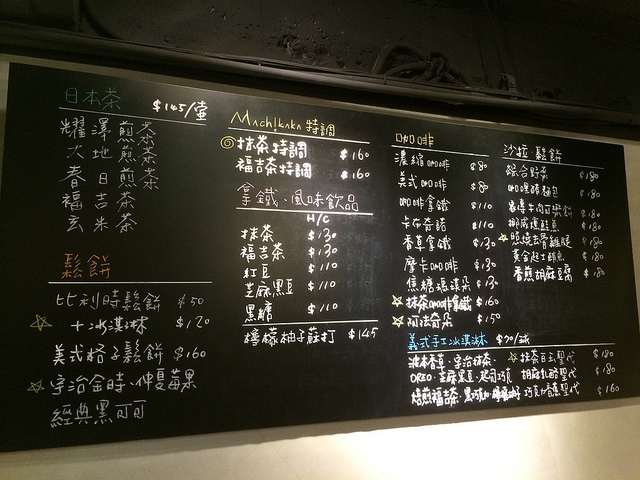 日本茶 $145/壺
耀澤煎茶
大地煎茶
春日煎茶
福吉茶
玄米茶
鬆餅
比利時鬆餅 $50
☆ 十冰淇淋 $120
美式格子鬆餅 $160
☆ 宇治金時、仲夏莓果
經典黑可可
Machikaka 特調
抹茶特調 $160
福吉茶特調 $160
拿鐵、風味飲品
H/C
抹茶 $130
福吉茶 $130
紅豆 $110
芝麻黑豆 $110
黑糖 $110
檸檬柚子蘇打 $145
咖啡
濃縮咖啡 $80
美式咖啡 $80
咖啡拿鐵 $110
卡布奇諾 $110
香草拿鐵 $130
摩卡咖啡 $130
焦糖瑪琪朵 $130
☆ 抹茶咖啡拿鐵 $160
☆ 阿法奇朵 $150
沙拉 鬆餅
綜合野菜 $180
$180
$180
$180
☆ $180
黃金起士鱈魚 $180
香煎胡麻豆腐 $180
義式手工冰淇淋 $90/球
宇治抹茶、
OREO、芝麻黑豆、起司巧貝
焙煎福吉茶、黑巧克力
☆ 抹茶百匯聖代 $180
胡麻乳酪聖代 $180
巧克力香蕉聖代 $160